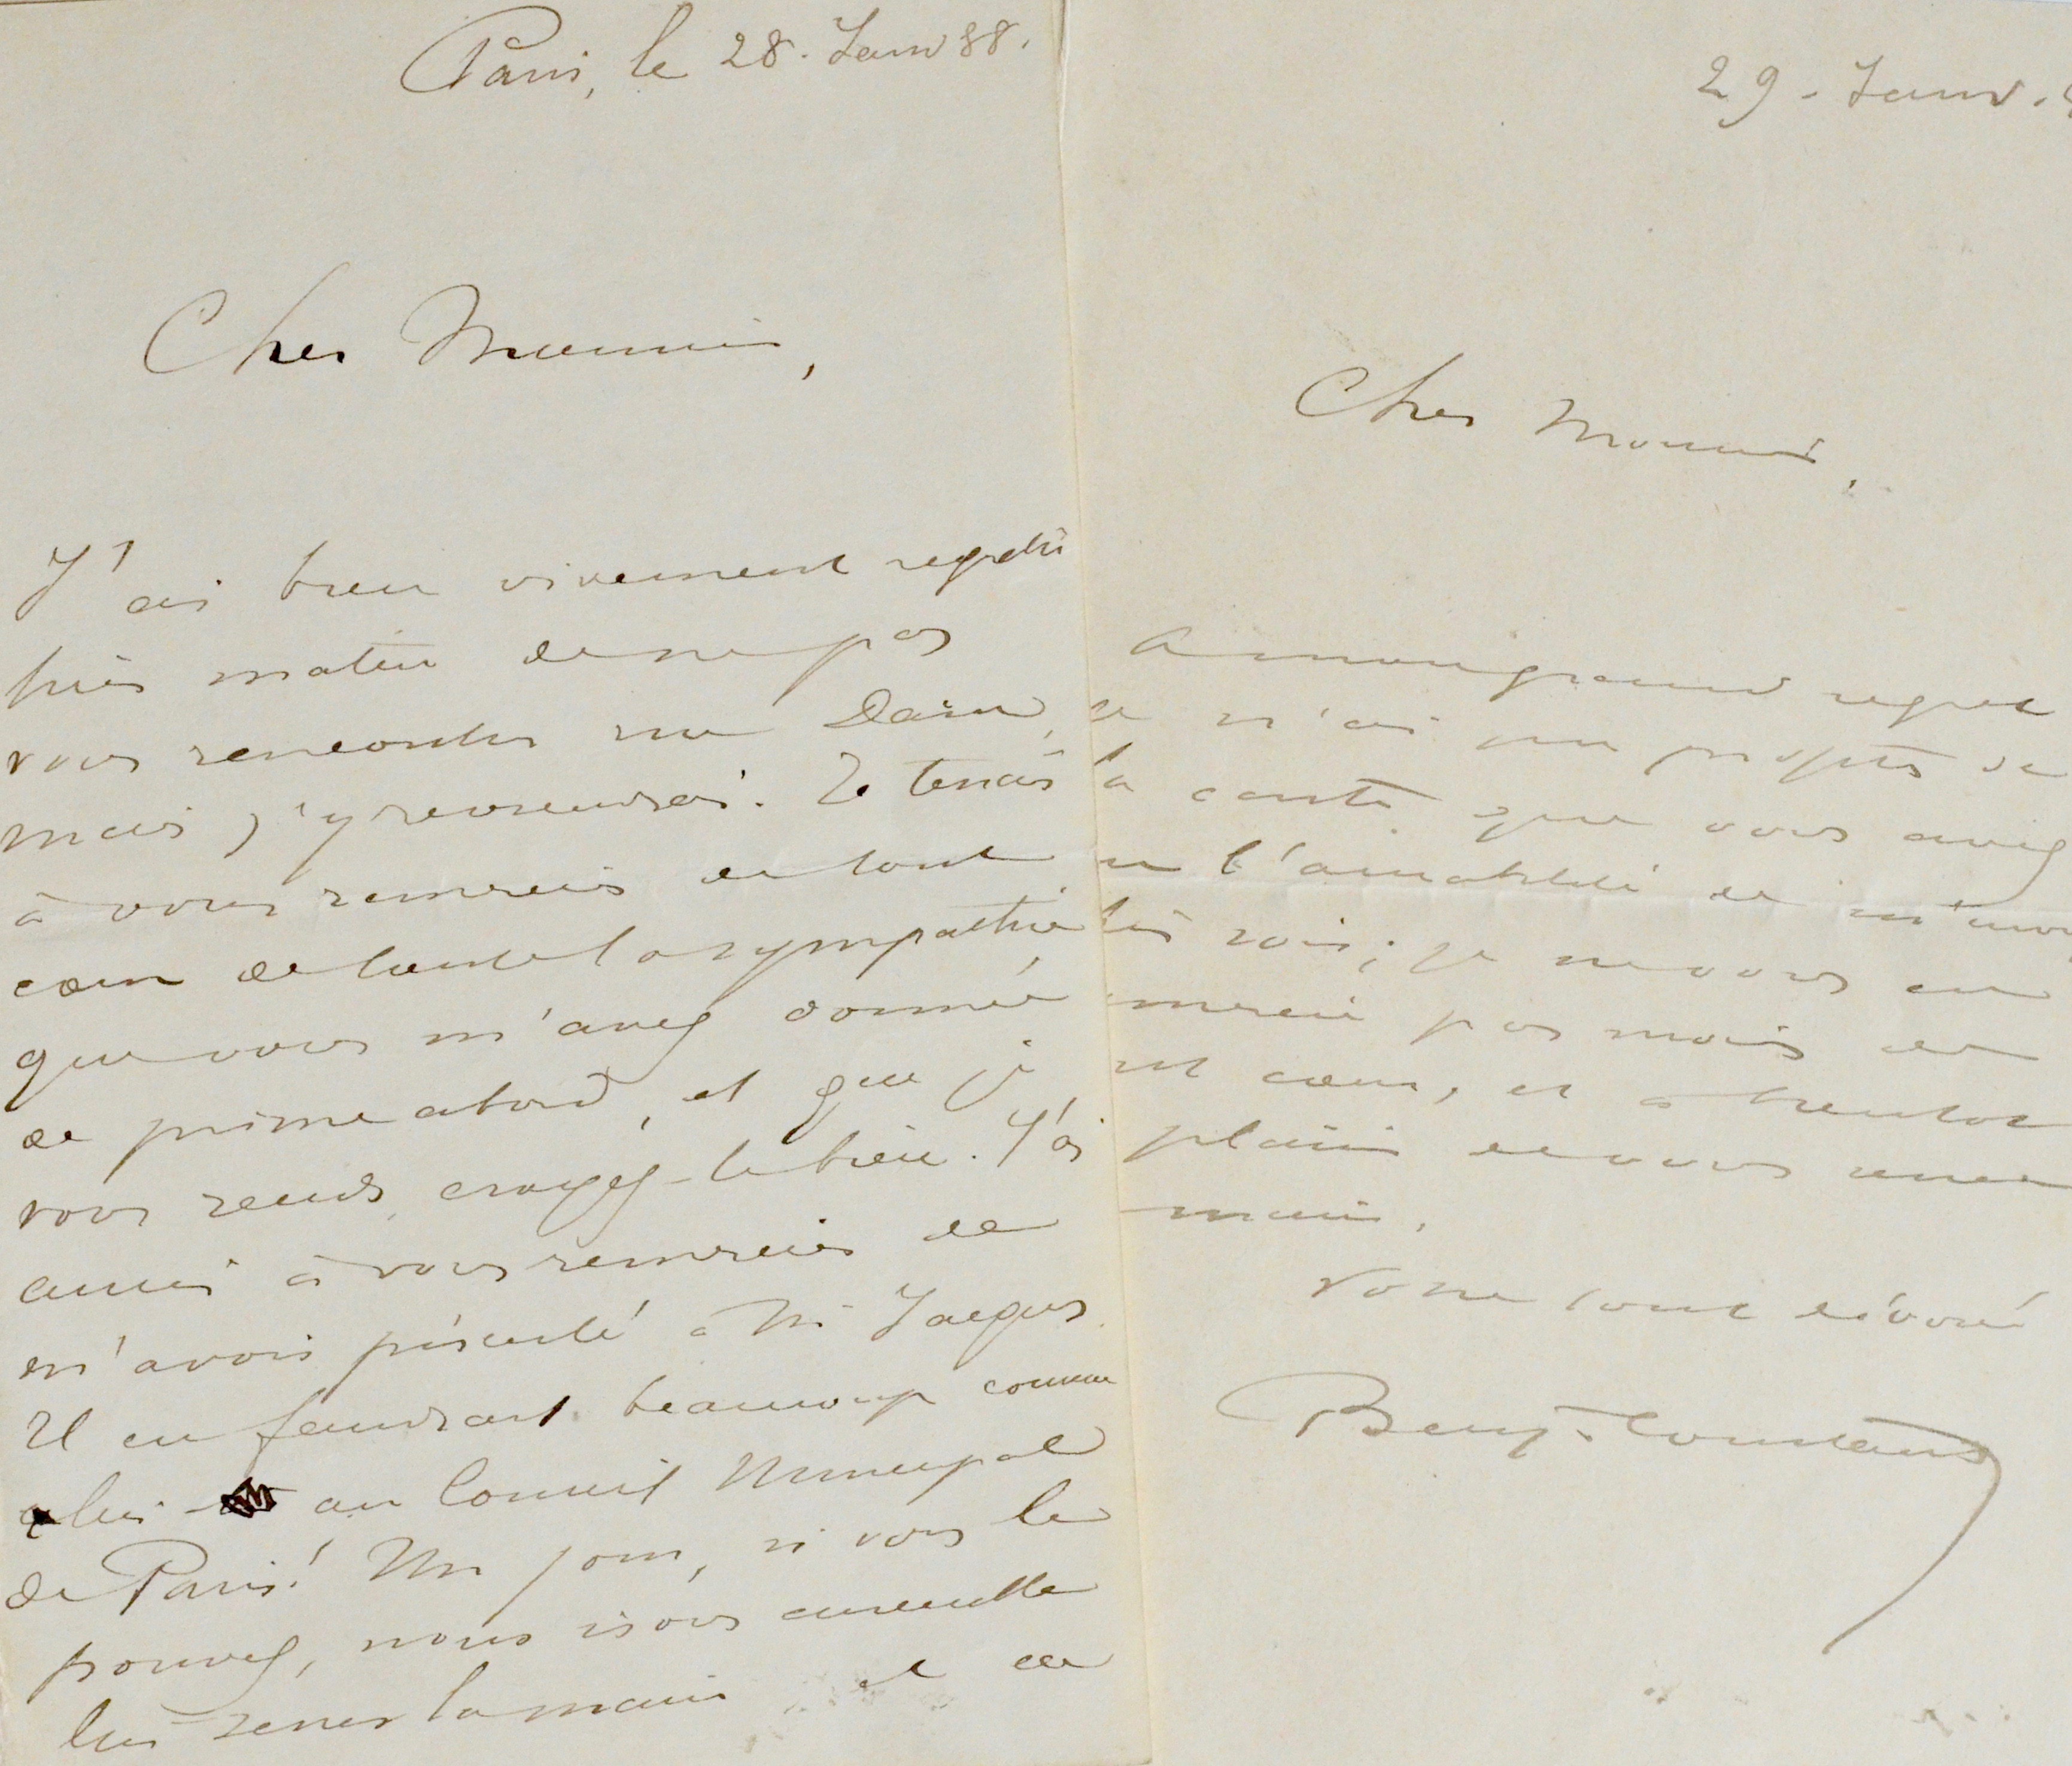 Paris, le 28. Janv 88.
Cher Monsieur,
J'ai bien vivement regretté
hier matin de ne pas
vous rencontrer rue Daru,
mais j'y reviendrai. Je tenais
à vous remercier de tout
cœur de toute la sympathie
que vous m'avez donnée
de prime abord, et que je
vous rends, croyez-le bien. J'ai
aussi à vous remercier de
m'avoir présenté à Mr Jacques
Il en faudrait beaucoup comme
lui au Conseil Municipal
de Paris! Un jour, si vous le
pouvez, nous irons ensemble
lui serrer la main et
29. Janv.
Cher Monsieur,
A mon grand regret
je n'ai pu profiter de
la carte que vous aviez
eu l'amabilité de m'envoyer
hier soir; je ne vous en
remercie pas moins de
tout cœur, et à bientôt
plaisir de vous serrer
main.
Votre tout dévoué
Benj-Constant